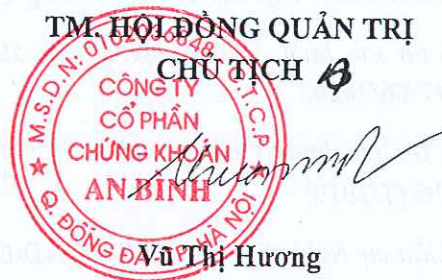 TM. HỘI ĐỒNG QUẢN TRỊ
CHỦ TỊCH
M.S.D.N: C.T.C.P
CÔNG TY
CỔ PHẦN
CHỨNG KHOÁN
AN BÌNH
Q. ĐỐNG ĐA - TP. HÀ NỘI
Vũ Thị Hương